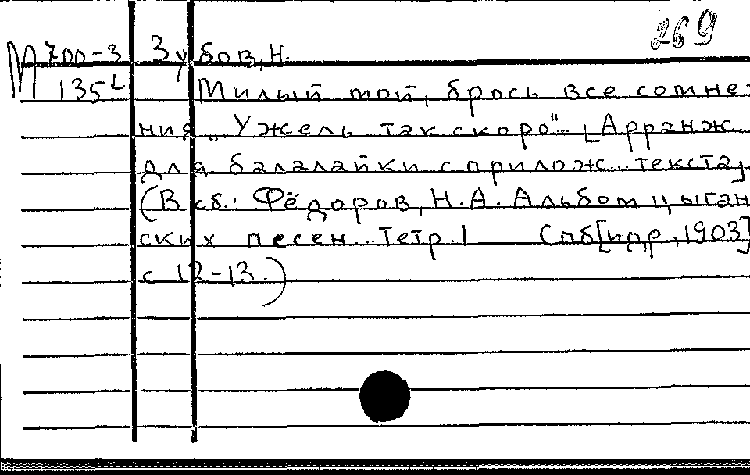 269
М 700-3 Зубов, Н.
135 L Милый мой, брось все сомне-
ния „Ужель так скоро" [Арранж.
для балалайки с прилож. текста]
(В сб.: Фёдоров, Н.А. Альбом цыган
ских песен. Тетр. 1 Спб [ирр, 1903]
с 12-13.)